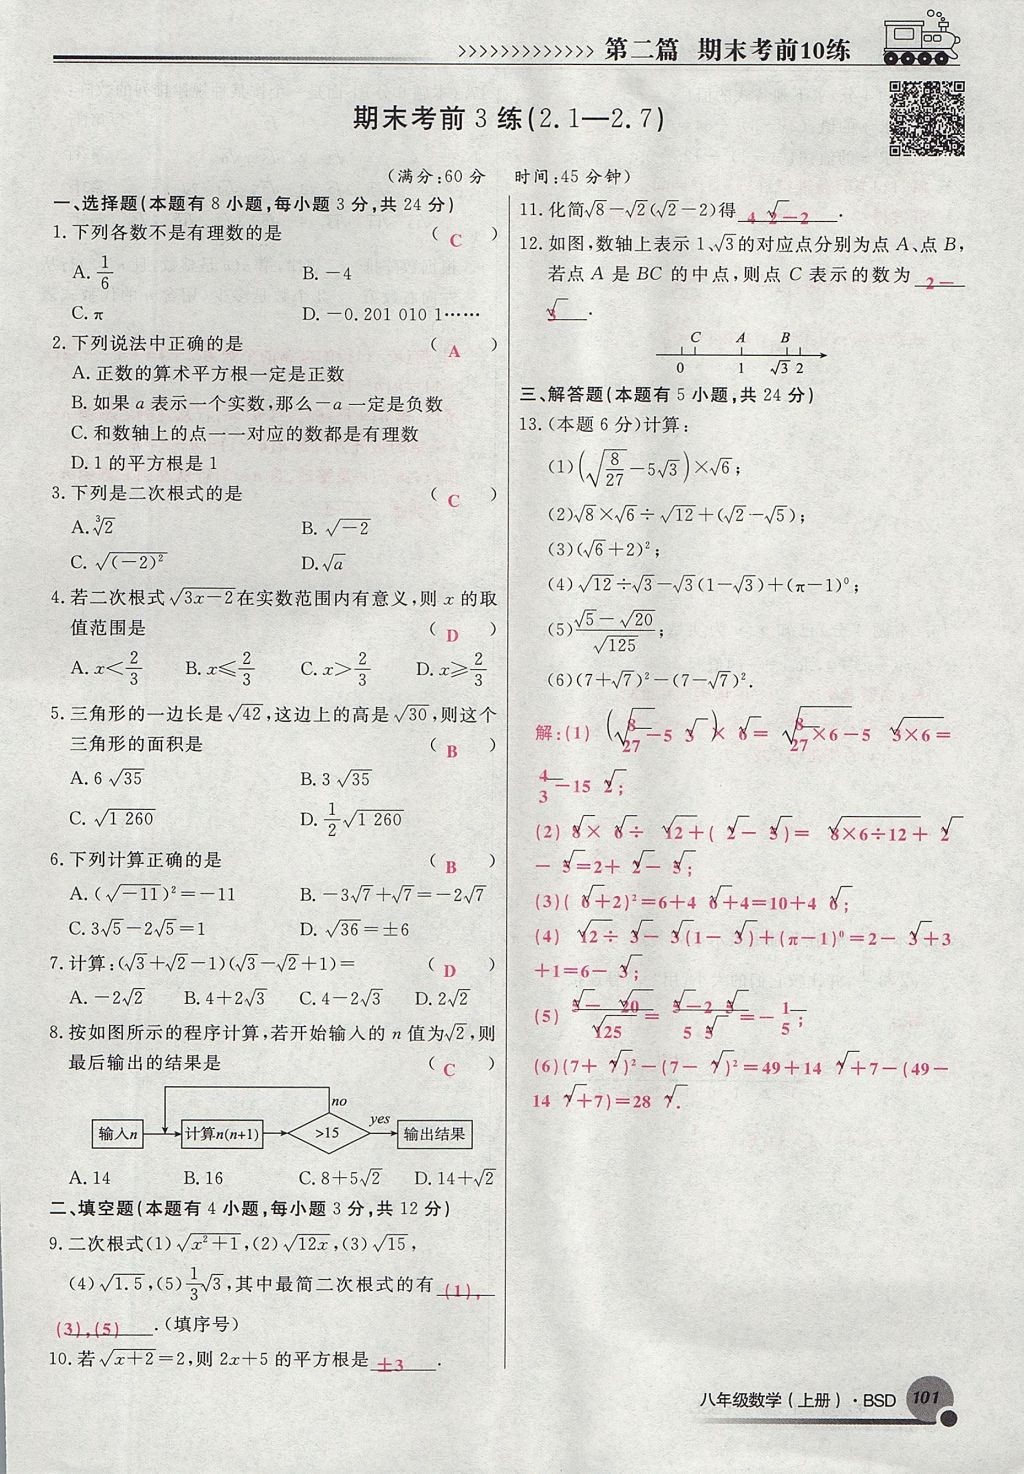 第二篇 期末考前10练
期末考前 3 练(2.1—2.7)
(满分:60分 时间:45分钟)
一、选择题(本题有 8 小题,每小题 3 分,共 24 分)
1.下列各数不是有理数的是 ( C )
A.1/6 B.-4
C.π D.-0.201 010 1……
2.下列说法中正确的是 ( A )
A.正数的算术平方根一定是正数
B.如果 a 表示一个实数,那么-a 一定是负数
C.和数轴上的点一一对应的数都是有理数
D.1 的平方根是 1
3.下列是二次根式的是 ( C )
A.∛2 B.√(-2)
C.√((-2)²) D.√a
4.若二次根式√(3x-2)在实数范围内有意义,则 x 的取
值范围是 ( D )
A.x<2/3 B.x⩽2/3 C.x>2/3 D.x⩾2/3
5.三角形的一边长是√42,这边上的高是√30,则这个
三角形的面积是 ( B )
A.6√35 B.3√35
C.√(1 260) D.1/2√(1 260)
6.下列计算正确的是 ( B )
A.(√(-11))²=-11 B.-3√7+√7=-2√7
C.3√5-2√5=1 D.√36=±6
7.计算:(√3+√2-1)(√3-√2+1)= ( D )
A.-2√2 B.4+2√3 C.4-2√3 D.2√2
8.按如图所示的程序计算,若开始输入的 n 值为√2,则
最后输出的结果是 ( C )
no
输入n 计算n(n+1) >15 yes 输出结果
A.14 B.16 C.8+5√2 D.14+√2
二、填空题(本题有 4 小题,每小题 3 分,共 12 分)
9.二次根式(1)√(x²+1),(2)√(12x),(3)√15,
(4)√1.5,(5)1/3√3,其中最简二次根式的有 (1),
(3),(5) .(填序号)
10.若√(x+2)=2,则 2x+5 的平方根是 ±3 .
11.化简√8-√2(√2-2)得 4√2-2 .
12.如图,数轴上表示 1、√3的对应点分别为点 A、点 B,
若点 A 是 BC 的中点,则点 C 表示的数为 2-
√3 .
C A B
0 1 √3 2
三、解答题(本题有 5 小题,共 24 分)
13.(本题 6 分)计算:
(1)(√(8/27)-5√3)×√6;
(2)√8×√6÷√12+(√2-√5);
(3)(√6+2)²;
(4)√12÷√3-√3(1-√3)+(π-1)⁰;
(5)(√5-√20)/√125;
(6)(7+√7)²-(7-√7)².
解:(1)(√(8/27)-5√3)×√6=√(8/27×6)-5√(3×6)=
4/3-15√2;
(2)√8×√6÷√12+(√2-√5)=√(8×6÷12)+√2
-√5=2+√2-√5;
(3)(√6+2)²=6+4√6+4=10+4√6;
(4)√12÷√3-√3(1-√3)+(π-1)⁰=2-√3+3
+1=6-√3;
(5)(√5-√20)/√125=(√5-2√5)/(5√5)=-1/5;
(6)(7+√7)²-(7-√7)²=49+14√7+7-(49-
14√7+7)=28√7.
八年级数学(上册)·BSD 101